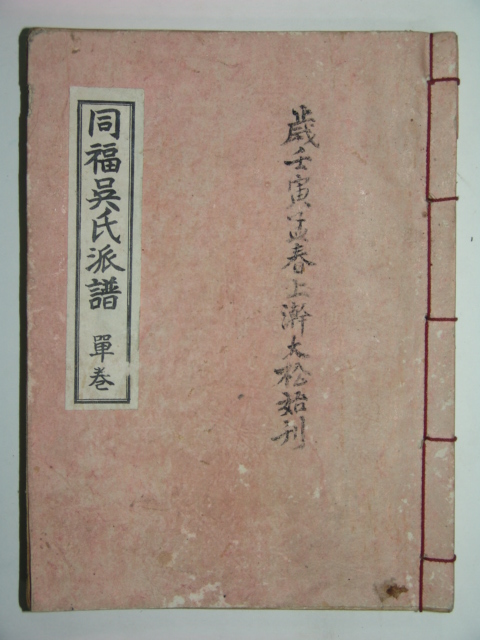 歲壬寅孟春上澣大松始刊
同福吳氏派譜 單卷